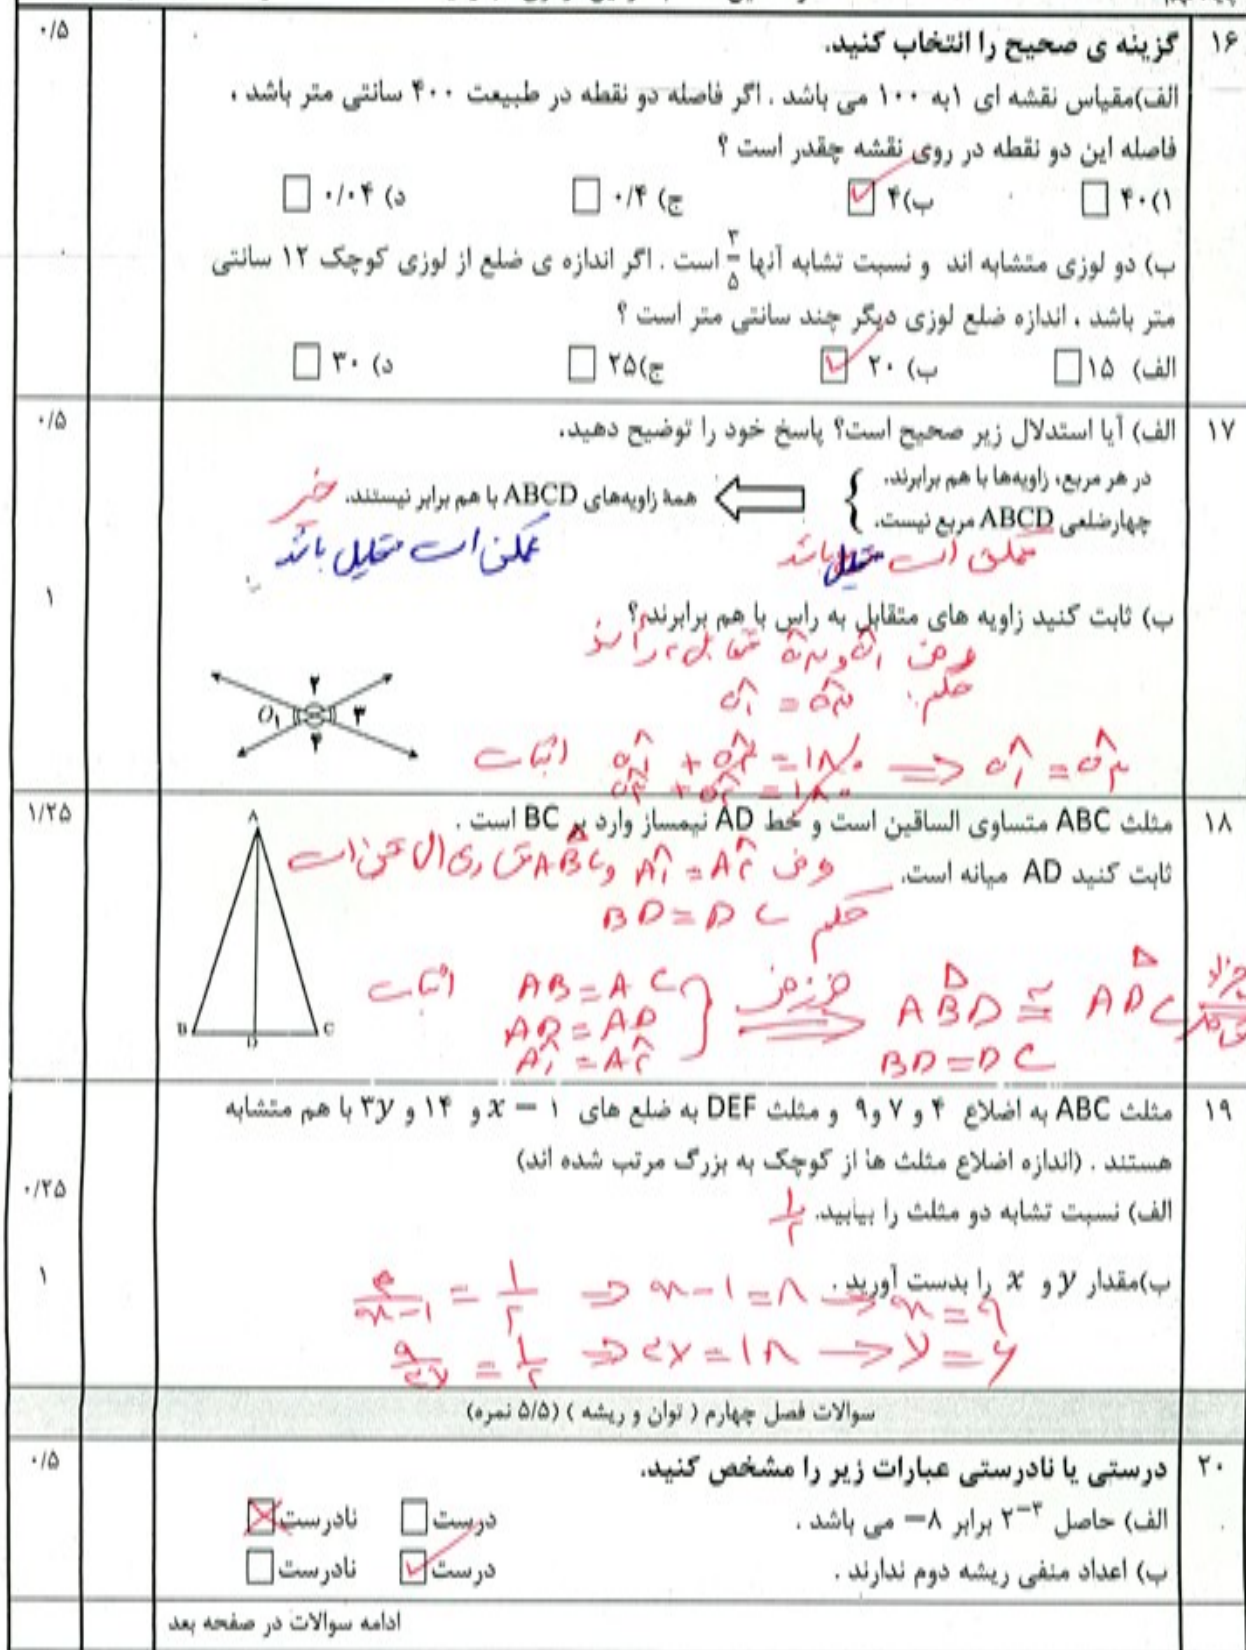 ۱۶ گزینه ی صحیح را انتخاب کنید. ۰/۵
الف)مقیاس نقشه ای ۱به ۱۰۰ می باشد . اگر فاصله دو نقطه در طبیعت ۴۰۰ سانتی متر باشد ،
فاصله این دو نقطه در روی نقشه چقدر است ؟
۱)۴۰ ب)۴ ج) ۰/۴ د) ۰/۰۴
ب) دو لوزی متشابه اند و نسبت تشابه آنها ۳/۵ است . اگر اندازه ی ضلع از لوزی کوچک ۱۲ سانتی
متر باشد ، اندازه ضلع لوزی دیگر چند سانتی متر است ؟
الف) ۱۵ ب) ۲۰ ج)۲۵ د) ۳۰
۱۷ الف) آیا استدلال زیر صحیح است؟ پاسخ خود را توضیح دهید. ۰/۵
در هر مربع، زاویه‌ها با هم برابرند.
چهارضلعی ABCD مربع نیست.
همهٔ زاویه‌های ABCD با هم برابر نیستند. خیر
ممکن است مستطیل باشد
ممکن است مستطیل باشد
ب) ثابت کنید زاویه های متقابل به راس با هم برابرند؟ ۱
فرض Ô۱ و Ô۳ متقابل به راسند
حکم: Ô۱ = Ô۳
۲
O ۱ ۳
۴
اثبات Ô۱ + Ô۲ = ۱۸۰ ⇒ Ô۱ = Ô۳
Ô۳ + Ô۲ = ۱۸۰
۱۸ مثلث ABC متساوی الساقین است و خط AD نیمساز وارد بر BC است . ۱/۲۵
ثابت کنید AD میانه است. فرض Â۱ = Â۲ و ABC متساوی الساقین است
حکم BD = DC
A
B D C
اثبات AB = AC
AD = AD
Â۱ = Â۲
ض ز ض ABD ≅ ADC
BD = DC
۱۹ مثلث ABC به اضلاع ۴ و ۷ و۹ و مثلث DEF به ضلع های x − ۱ و ۱۴ و ۳y با هم متشابه
هستند . (اندازه اضلاع مثلث ها از کوچک به بزرگ مرتب شده اند)
الف) نسبت تشابه دو مثلث را بیابید. ۱/۲ ۰/۲۵
ب)مقدار y و x را بدست آورید . ۱
۴/x−۱ = ۱/۲ ⇒ x−۱ = ۸ ⇒ x = ۹
۹/۳y = ۱/۲ ⇒ ۳y = ۱۸ → y = ۶
سوالات فصل چهارم ( توان و ریشه ) (۵/۵ نمره)
۲۰ درستی یا نادرستی عبارات زیر را مشخص کنید. ۰/۵
الف) حاصل ۲⁻³ برابر ۸− می باشد . درست نادرست
ب) اعداد منفی ریشه دوم ندارند . درست نادرست
ادامه سوالات در صفحه بعد